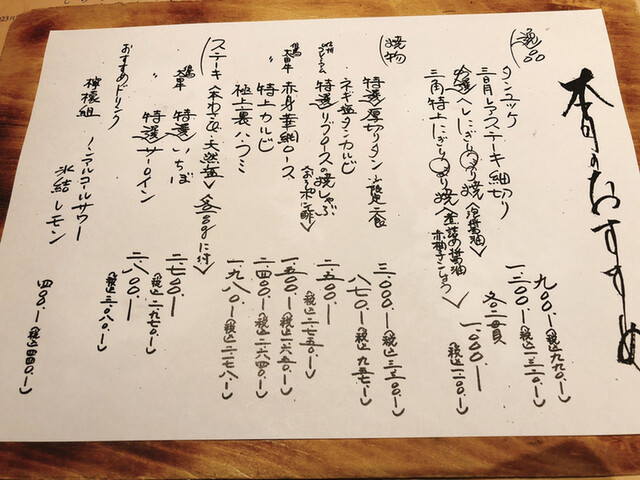 本日のおすすめ
逸品
タンユッケ 九〇〇.ー(税込九九〇.ー)
三日月レアステーキ細切り 一.二〇〇.ー(税込一.三二〇.ー)
特選ヘレにぎり
三角特上にぎり 各二貫 一.〇〇〇.ー(税込一.一〇〇.ー)
焼物
特選厚切りタン 三.〇〇〇.ー(税込三.三〇〇.ー)
ネギ塩タンカルビ 八七〇.ー(税込九五七.ー)
特選リブロースの焼しゃぶ おろしポン酢 二.五〇〇.ー(税込二.七五〇.ー)
赤身 一.五〇〇.ー(税込一.六五〇.ー)
特上カルビ 二.四〇〇.ー(税込二.六四〇.ー)
極上裏ハラミ 一.九八〇.ー(税込二.一七八.ー)
ステーキ(本わさび・天然塩)
特選いちぼ 二.七〇〇.ー(税込二.九七〇.ー)
〃 特選サーロイン 二.八〇〇.ー(税込三.〇八〇.ー)
おすすめドリンク
檸檬組 ノンアルコールサワー
氷結レモン 四〇〇.ー(税込四四〇.ー)